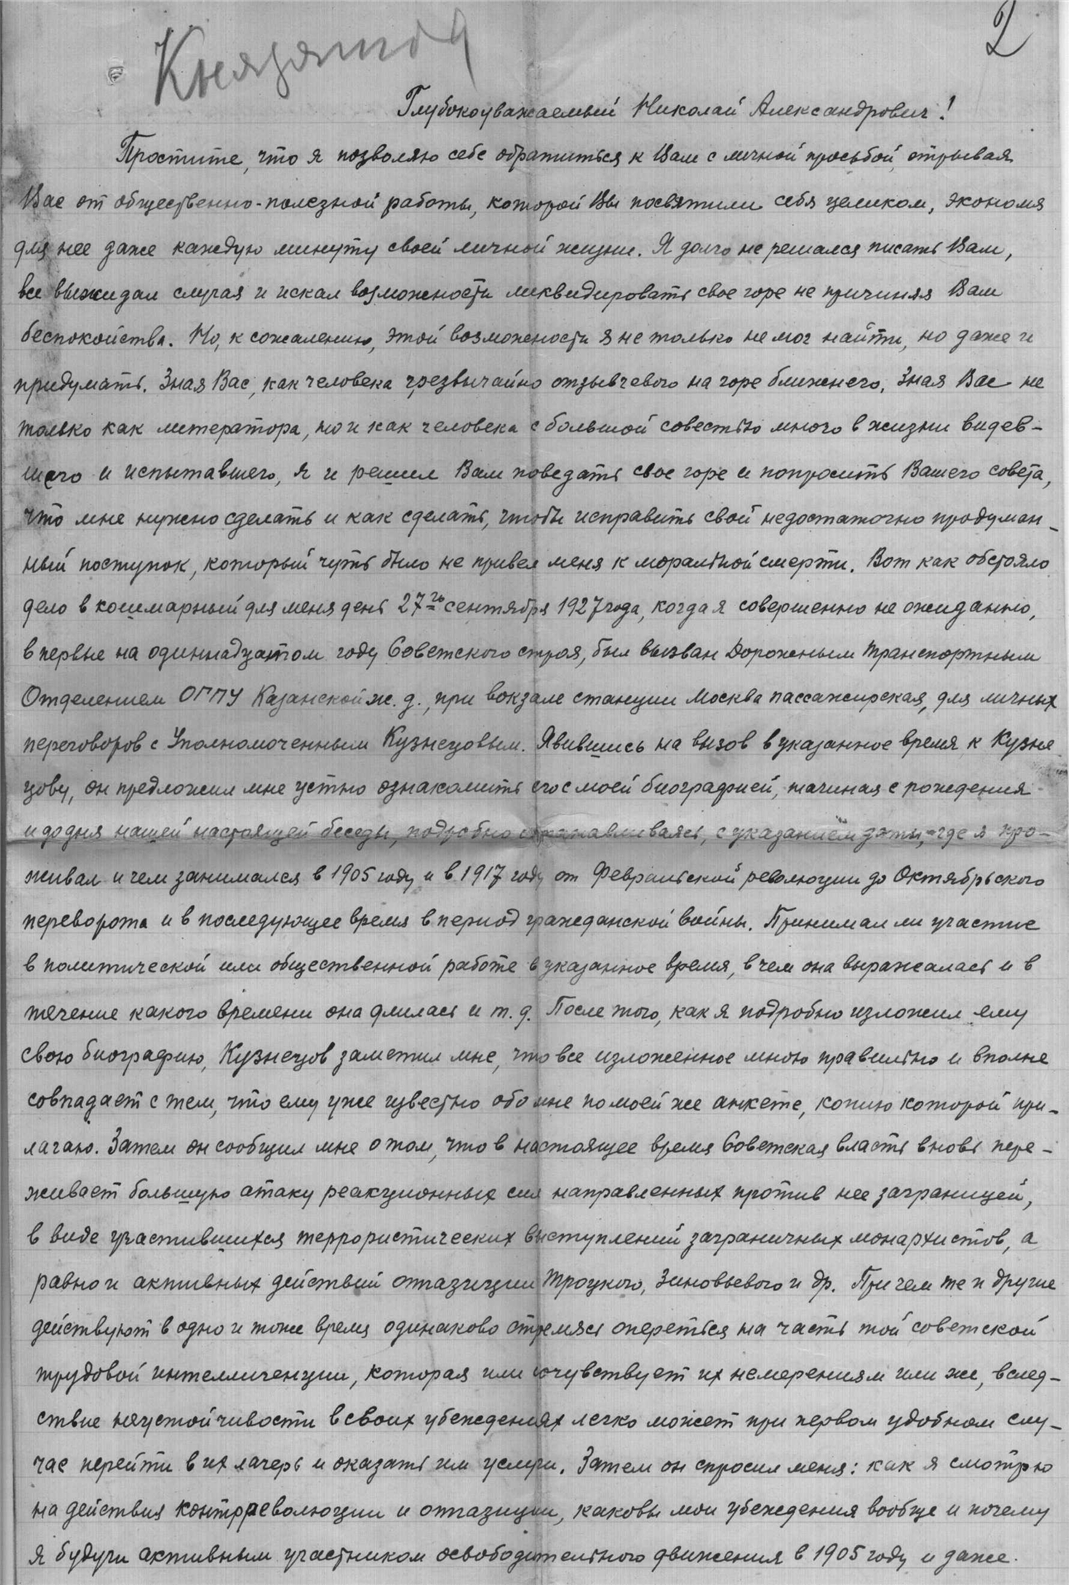 2
Глубокоуважаемый Николай Александрович!
Простите, что я позволяю себе обратиться к Вам с личной просьбой, отрывая
Вас от общественно-полезной работы, которой Вы посвятили себя целиком, экономя
для нее даже каждую минуту своей личной жизни. Я долго не решался писать Вам,
все выжидал случая и искал возможности ликвидировать свое горе не причиняя Вам
беспокойства. Но, к сожалению, этой возможности я не только не мог найти, но даже и
придумать. Зная Вас, как человека чрезвычайно отзывчевого на горе ближнего, зная Вас не
только как литератора, но и как человека с большой совестью много в жизни видев-
шего и испытавшего, я и решил Вам поведать свое горе и попросить Вашего совета,
что мне нужно сделать и как сделать, чтобы исправить свой недостаточно продуман-
ный поступок, который чуть было не привел меня к моральной смерти. Вот как обстояло
дело в кошмарный для меня день 27го сентября 1927 года, когда я совершенно не ожиданно,
в первые на одиннадцатом году Советского строя, был вызван Дорожным Транспортным
Отделением ОГПУ Казанской ж. д., при вокзале станции Москва пассажирская, для личных
переговоров с Уполномоченным Кузнецовым. Явившись на вызов в указанное время к Кузне
цову, он предложил мне устно ознакомить его с моей биографией, начиная с рождения
и до дня нашей настоящей беседы, подробно останавливаясь, с указанием даты, где я про-
живал и чем занимался в 1905 году и в 1917 году от Февральской революции до Октябрьского
переворота и в последующее время в период гражданской войны. Принимал ли участие
в политической или общественной работе в указанное время, в чем она выражалась и в
течение какого времени она длилась и т. д. После того, как я подробно изложил ему
свою биографию, Кузнецов заметил мне, что все изложенное мною правильно и вполне
совпадает с тем, что ему уже известно обо мне по моей же анкете, копию которой при-
лагаю. Затем он сообщил мне о том, что в настоящее время Советская власть вновь пере-
живает большую атаку реакционных сил направленных против нее заграницей,
в виде участившихся террористических выступлений заграничных монархистов, а
равно и активных действий оппазиции Троцкого, Зиновьевого и др. Причем те и другие
действуют в одно и тоже время одинаково стремясь опереться на часть той советской
трудовой интеллигенции, которая или сочувствует их немерениям или же, вслед-
ствие неустойчивости в своих убеждениях легко может при первом удобном слу-
чае перейти в их лагерь и оказать им услуги. Затем он спросил меня: как я смотрю
на действия контрреволюции и оппазиции, каковы мои убеждения вообще и почему
я будучи активным участником освободительного движения в 1905 году и даже